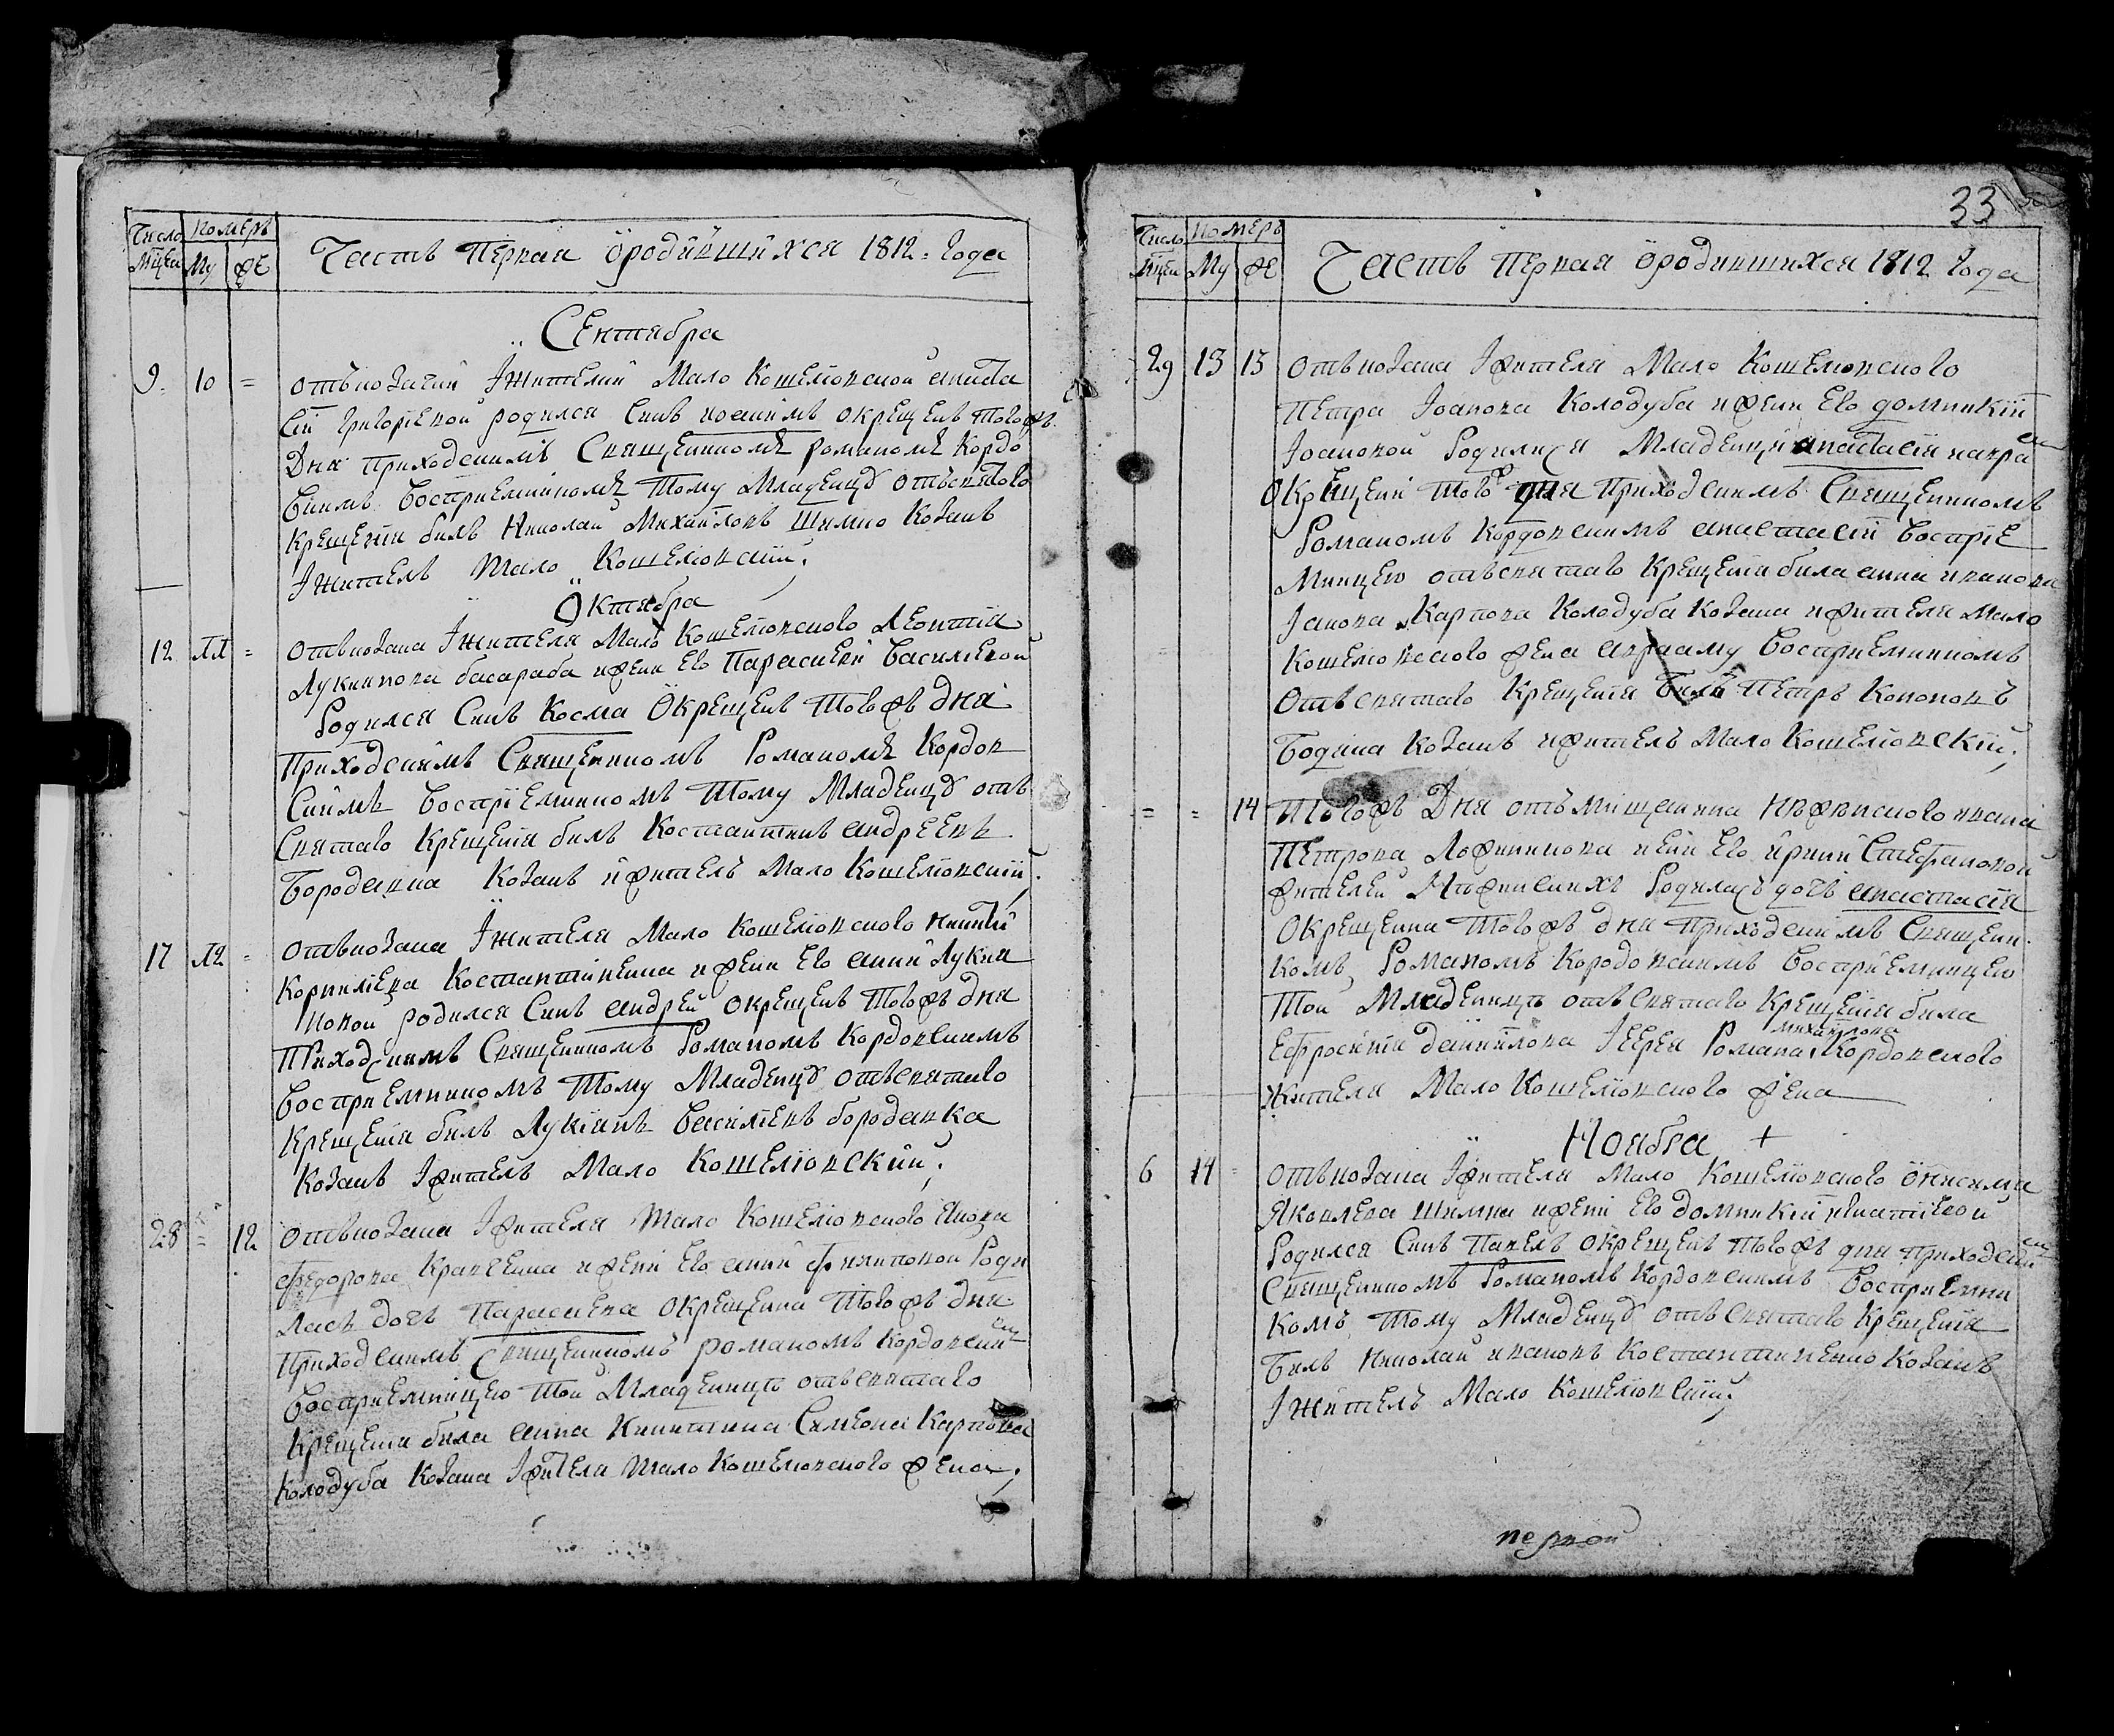 Число Мцси
Номеръ
Му
Же
Часть Первая ородившихся 1812: года
Сентября
9. 10 = отъ козачки Iжителки Мало Кошелювской анаста
сіи григоріевой родился Синъ иоакимъ окрещенъ тогожъ
Дня приходскимъ Священикомъ романомъ Кордо
вскимъ восприемникомъ тому Младенцу отъ святого
Крещенія билъ Николай Михайловъ Шимко Козакъ
Iжитель Мало Кошелювскій;
Октября
12 11 = отъ козака Iжителя Мало Кошелювского Леонтія
Лукинова басараба ижени Его Параскеви Василіевой
Родился Синъ Косма Окрещенъ тогожъ дня
приходскимъ Священикомъ Романомъ Кордов
скимъ восприемникомъ тому Младенцу отъ
Святаго Крещенія билъ Костантинъ андреевъ
Бородавка Козакъ ижитель Мало Кошелювскій;
17 12 = отъ козака Iжителя Мало Кошелювского никиты
Корниліева Костантіненка ижени Его анни Луки
новой родился Синъ андрей окрещенъ тогожъ дня
приходскимъ Священикомъ Романомъ Кордовскимъ
восприемникомъ тому Младенцу отъ святаго
Крещенія билъ Лукіанъ Василіевъ бородавка
Козакъ Iжитель Мало Кошелювскій;
28 = 12 отъ козака Iжителя Мало Кошелювского Якова
федорова Кравченка ижени Его анни филиповой Роди
лась дочь Параскева окрещенна тогожъ дня
приходскимъ Священикомъ романомъ Кордовским
восприемницею той Младеницы отъ святаго
Крещенія била анна Никитина Симеона Карпова
Колодуба Козака Iжителя Мало Кошелювского жена;
33
Число Мцси
Номеръ
Му
Же
Часть первая ородившихся 1812 года
29 13 13 отъ козака Iжителя Мало Кошелювского
Петра Iоанова Колодуба ижени Его домникіи
Iоановой Родилися Младенци анастасія иавраам
Окрещени того ж дня приходскимъ Священикомъ
Романомъ Кордовскимъ анастасіи воспріе
мницею отъ святаго Крещенія била анна иванова
Iакова Карпова Колодуба Козака ижителя Мало
Кошелювского жена аврааму восприемникомъ
Отъ святаго Крещенія билъ Петръ Кононовъ
Бодина Козакъ ижитель Мало Кошелювскій;
= = 14 тогожъ Дня отъ Мищанина Нѣжинского ивана
Петрова Ложникова ижени Его ирини Стефановой
жителей Нѣжинскихъ Родилась дочь анастасія
Окрещенна тогожъ дня приходскимъ Священи
комъ Романомъ Кордовскимъ восприемницею
той Младеници отъ святаго Крещенія била
Ефросинія даниилова Iерея Романа Михайлова Кордовского
Жителя Мало Кошелювского жена
Ноября +
6 14 = отъ козака Iжителя Мало Кошелювского онисима
Яковлева Шимка ижени Его домникіи игнатіевой
Родился Синъ Павелъ окрещенъ тогожъ дня приходским
Священикомъ Романомъ Кордовскимъ восприемни
комъ тому Младенцу отъ святаго Крещенія
билъ Николай ивановъ Костантиненко Козакъ
Iжитель Мало Кошелювскій;
первой